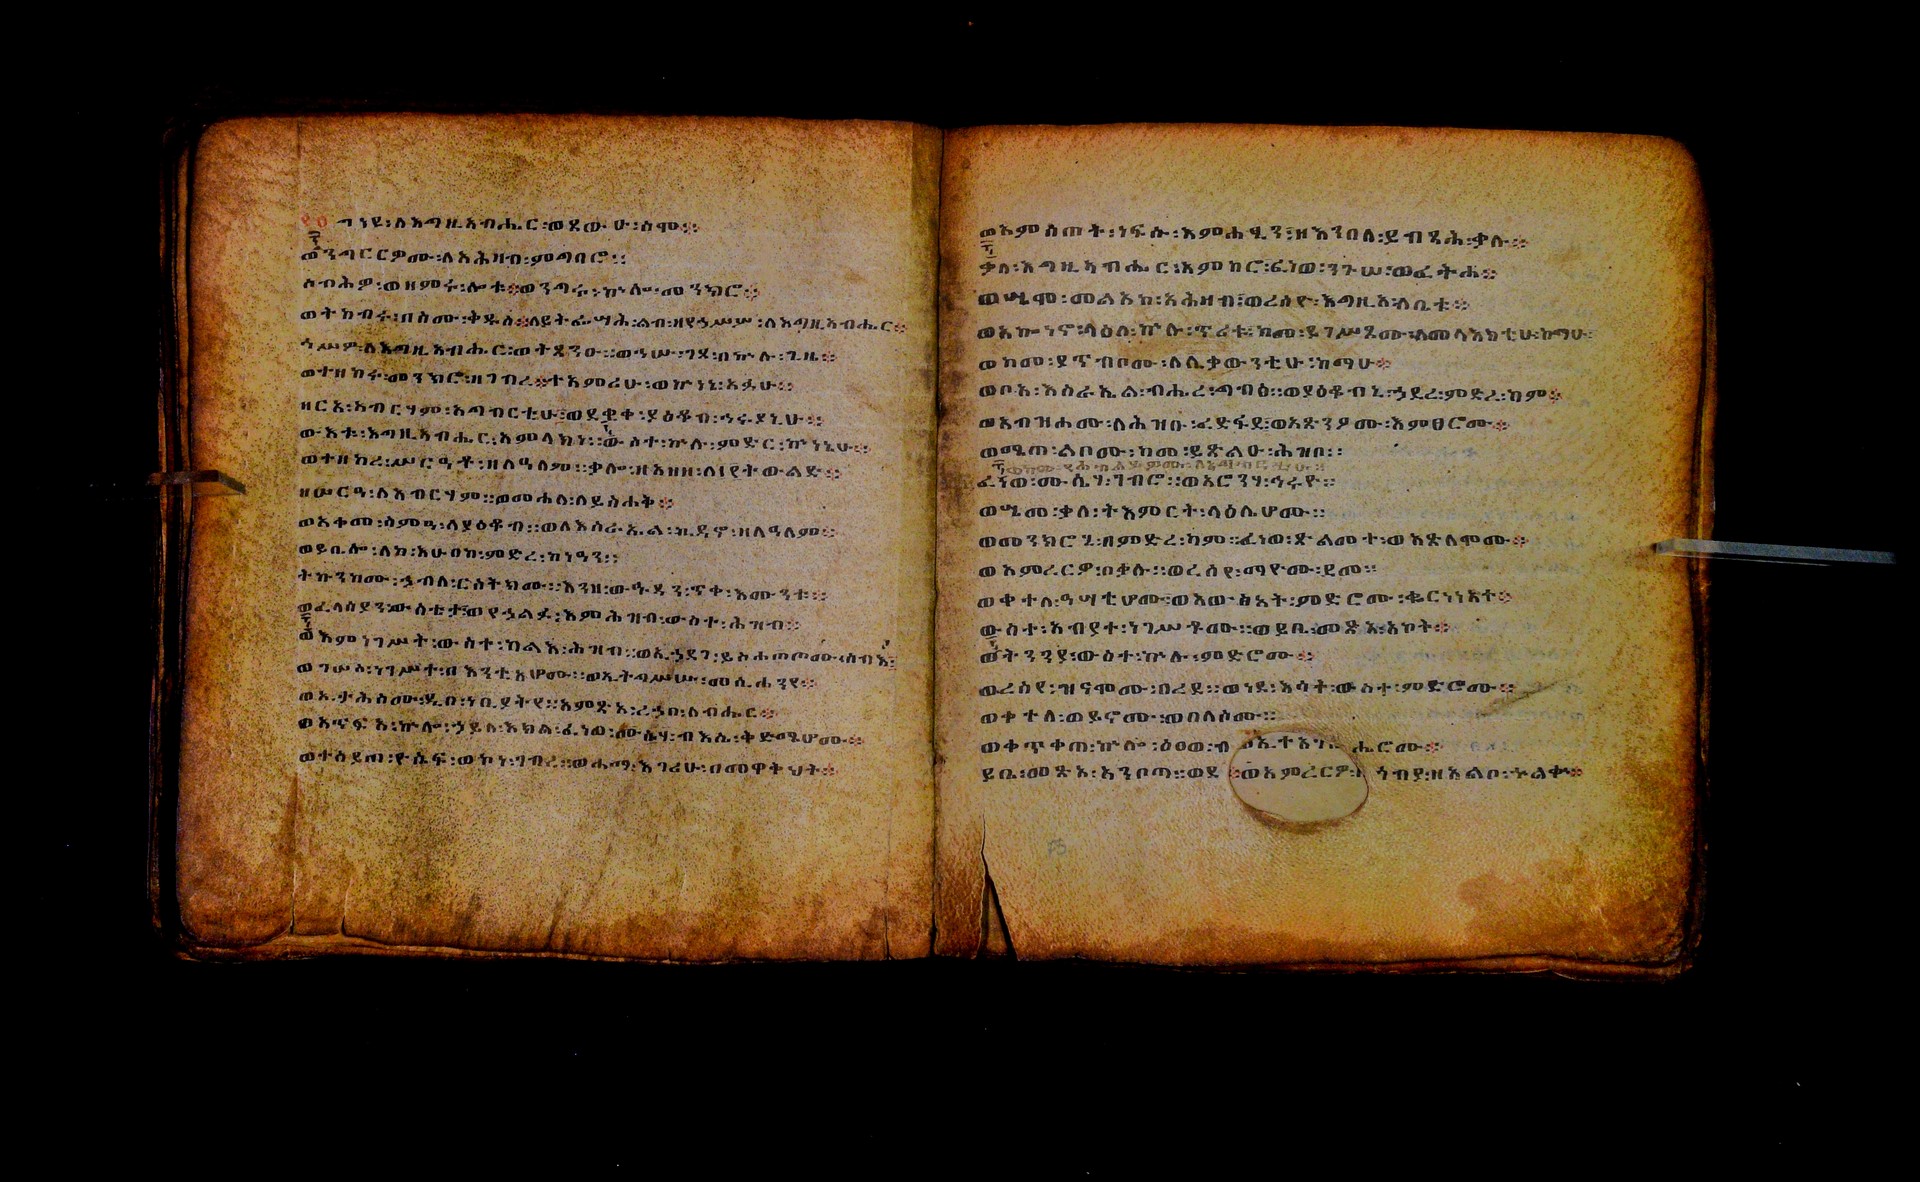 ግነዩ፡ለእግዚአብሔር፡ወጸውዑ፡ስሞ።
ወንግርዎሙ፡ለአሕዛብ፡ምግባሮ።
ሰብሕዎ፡ወዘምሩ፡ሎቱ።ወንግሩ፡ኵሎ፡መንክሮ።
ወትከብሩ፡በስሙ፡ቅዱስ።ለይትፌሣሕ፡ልብ፡ዘየኃሥሦ፡ለእግዚአብሔር።
ኅሥዎ፡ለእግዚአብሔር፡ወትጸንዑ።ወኅሡ፡ገጾ፡በኵሉ፡ጊዜ።
ወተዘከሩ፡መንክሮ፡ዘገብረ።ተአምሪሁ፡ወኵነኔ፡አፉሁ።
ዘርአ፡አብርሃም፡አግብርቲሁ።ወደቂቀ፡ያዕቆብ፡ኅሩያኒሁ።
ውእቱ፡እግዚአብሔር፡አምላክነ።ውስተ፡ኵሉ፡ምድር፡ኵነኔሁ።
ወተዘከረ፡ሥርዓቶ፡ዘለዓለም።ቃሎ፡ዘአዘዘ፡ለ፲፻ትውልድ።
ዘሠርዓ፡ለአብርሃም።ወመሐለ፡ለይስሐቅ።
ወአቀመ፡ስምዓ፡ለያዕቆብ።ወለእስራኤል፡ኪዳኖ፡ዘለዓለም።
ወይቤሎ፡ለከ፡እሁበከ፡ምድረ፡ከነዓን።
ትኩንክሙ፡ኃብለ፡ርስትክሙ።እንዘ፡ውኁዳን፡ጥቀ፡እሙንቱ።
ወፈላስያን፡ውስቴታ።ወየኃልፉ፡እምሕዝብ፡ውስተ፡ሕዝብ።
ወእምነገሥት፡ውስተ፡ካልእ፡ሕዝብ።ወኢኃደገ፡ይስሐጦሙ፡ሰብእ።
ወገሠጸ፡ነገሥተ፡በእንቲአሆሙ።ወኢትግሥሡ፡መሲሐንየ።
ወኢታሕስሙ፡ዲበ፡ነቢያትየ።አምጽአ፡ረኃበ፡ለብሔር።
ወአጥፍአ፡ኵሎ፡ኃይለ፡እክል።ፈነወ፡ብእሴ፡ቅድሜሆሙ።
ወተሰይጠ፡ዮሴፍ፡ወኮነ፡ገብረ።ወሐማ፡እገሪሁ፡በመዋቅህት።
ወአምሰጠት፡ነፍሱ፡እምሐፂን።ዘእንበለ፡ይብጻሕ፡ቃሉ።
ቃለ፡እግዚአብሔር፡አምከሮ።ፈነወ፡ንጉሠ፡ወፈትሐ።
ወሤሞ፡መልአከ፡አሕዛብ።ወረሰዮ፡እግዚአ፡ለቤቱ።
ወአኰነኖ፡ላዕለ፡ኵሉ፡ጥሪቱ።ከመ፡ይገሥጾሙ፡ለመላእክቲሁ፡ከማሁ።
ወከመ፡ያጥብቦሙ፡ለሊቃውንቲሁ፡ከማሁ።
ወቦአ፡እስራኤል፡ብሔረ፡ግብፅ።ወያዕቆብኒ፡ኃደረ፡ምድረ፡ካም።
ወአብዝሖሙ፡ለሕዝቡ፡ፈድፋደ።ወአጽንዖሙ፡እምፀሮሙ።
ወሜጠ፡ልቦሙ፡ከመ፡ይጽልዑ፡ሕዝቦ።
ፈነወ፡ሙሴሃ፡ገብሮ።ወአሮንሃ፡ኅሩዮ።
ወሤመ፡ቃለ፡ትእምርት፡ላዕሌሆሙ።
ወመንክሮሂ፡በምድረ፡ካም።ፈነወ፡ጽልመተ፡ወአጽለሞሙ።
ወአምረርዎ፡በቃሉ።ወረሰየ፡ማዮሙ፡ደመ።
ወቀተለ፡ዓሣቲሆሙ።ወአውፅአት፡ምድሮሙ፡ቈርነነዓተ።
ውስተ፡አብያተ፡ነገሥቶሙ።ወይቤ፡መጽአ፡አኮት።
ወትንንያ፡ውስተ፡ኵሉ፡ምድሮሙ።
ወረሰየ፡ዝናሞሙ፡በረደ።ወነደ፡እሳት፡ውስተ፡ምድሮሙ።
ወቀተለ፡ወይኖሙ፡ወበለሶሙ።
ወቀጥቀጠ፡ኵሎ፡ዕፀወ፡ብሔሮሙ።
ይቤ፡መጽአ፡አንበጣ።ወደጎብያ፡ዘአልቦ፡ኍልቈ።